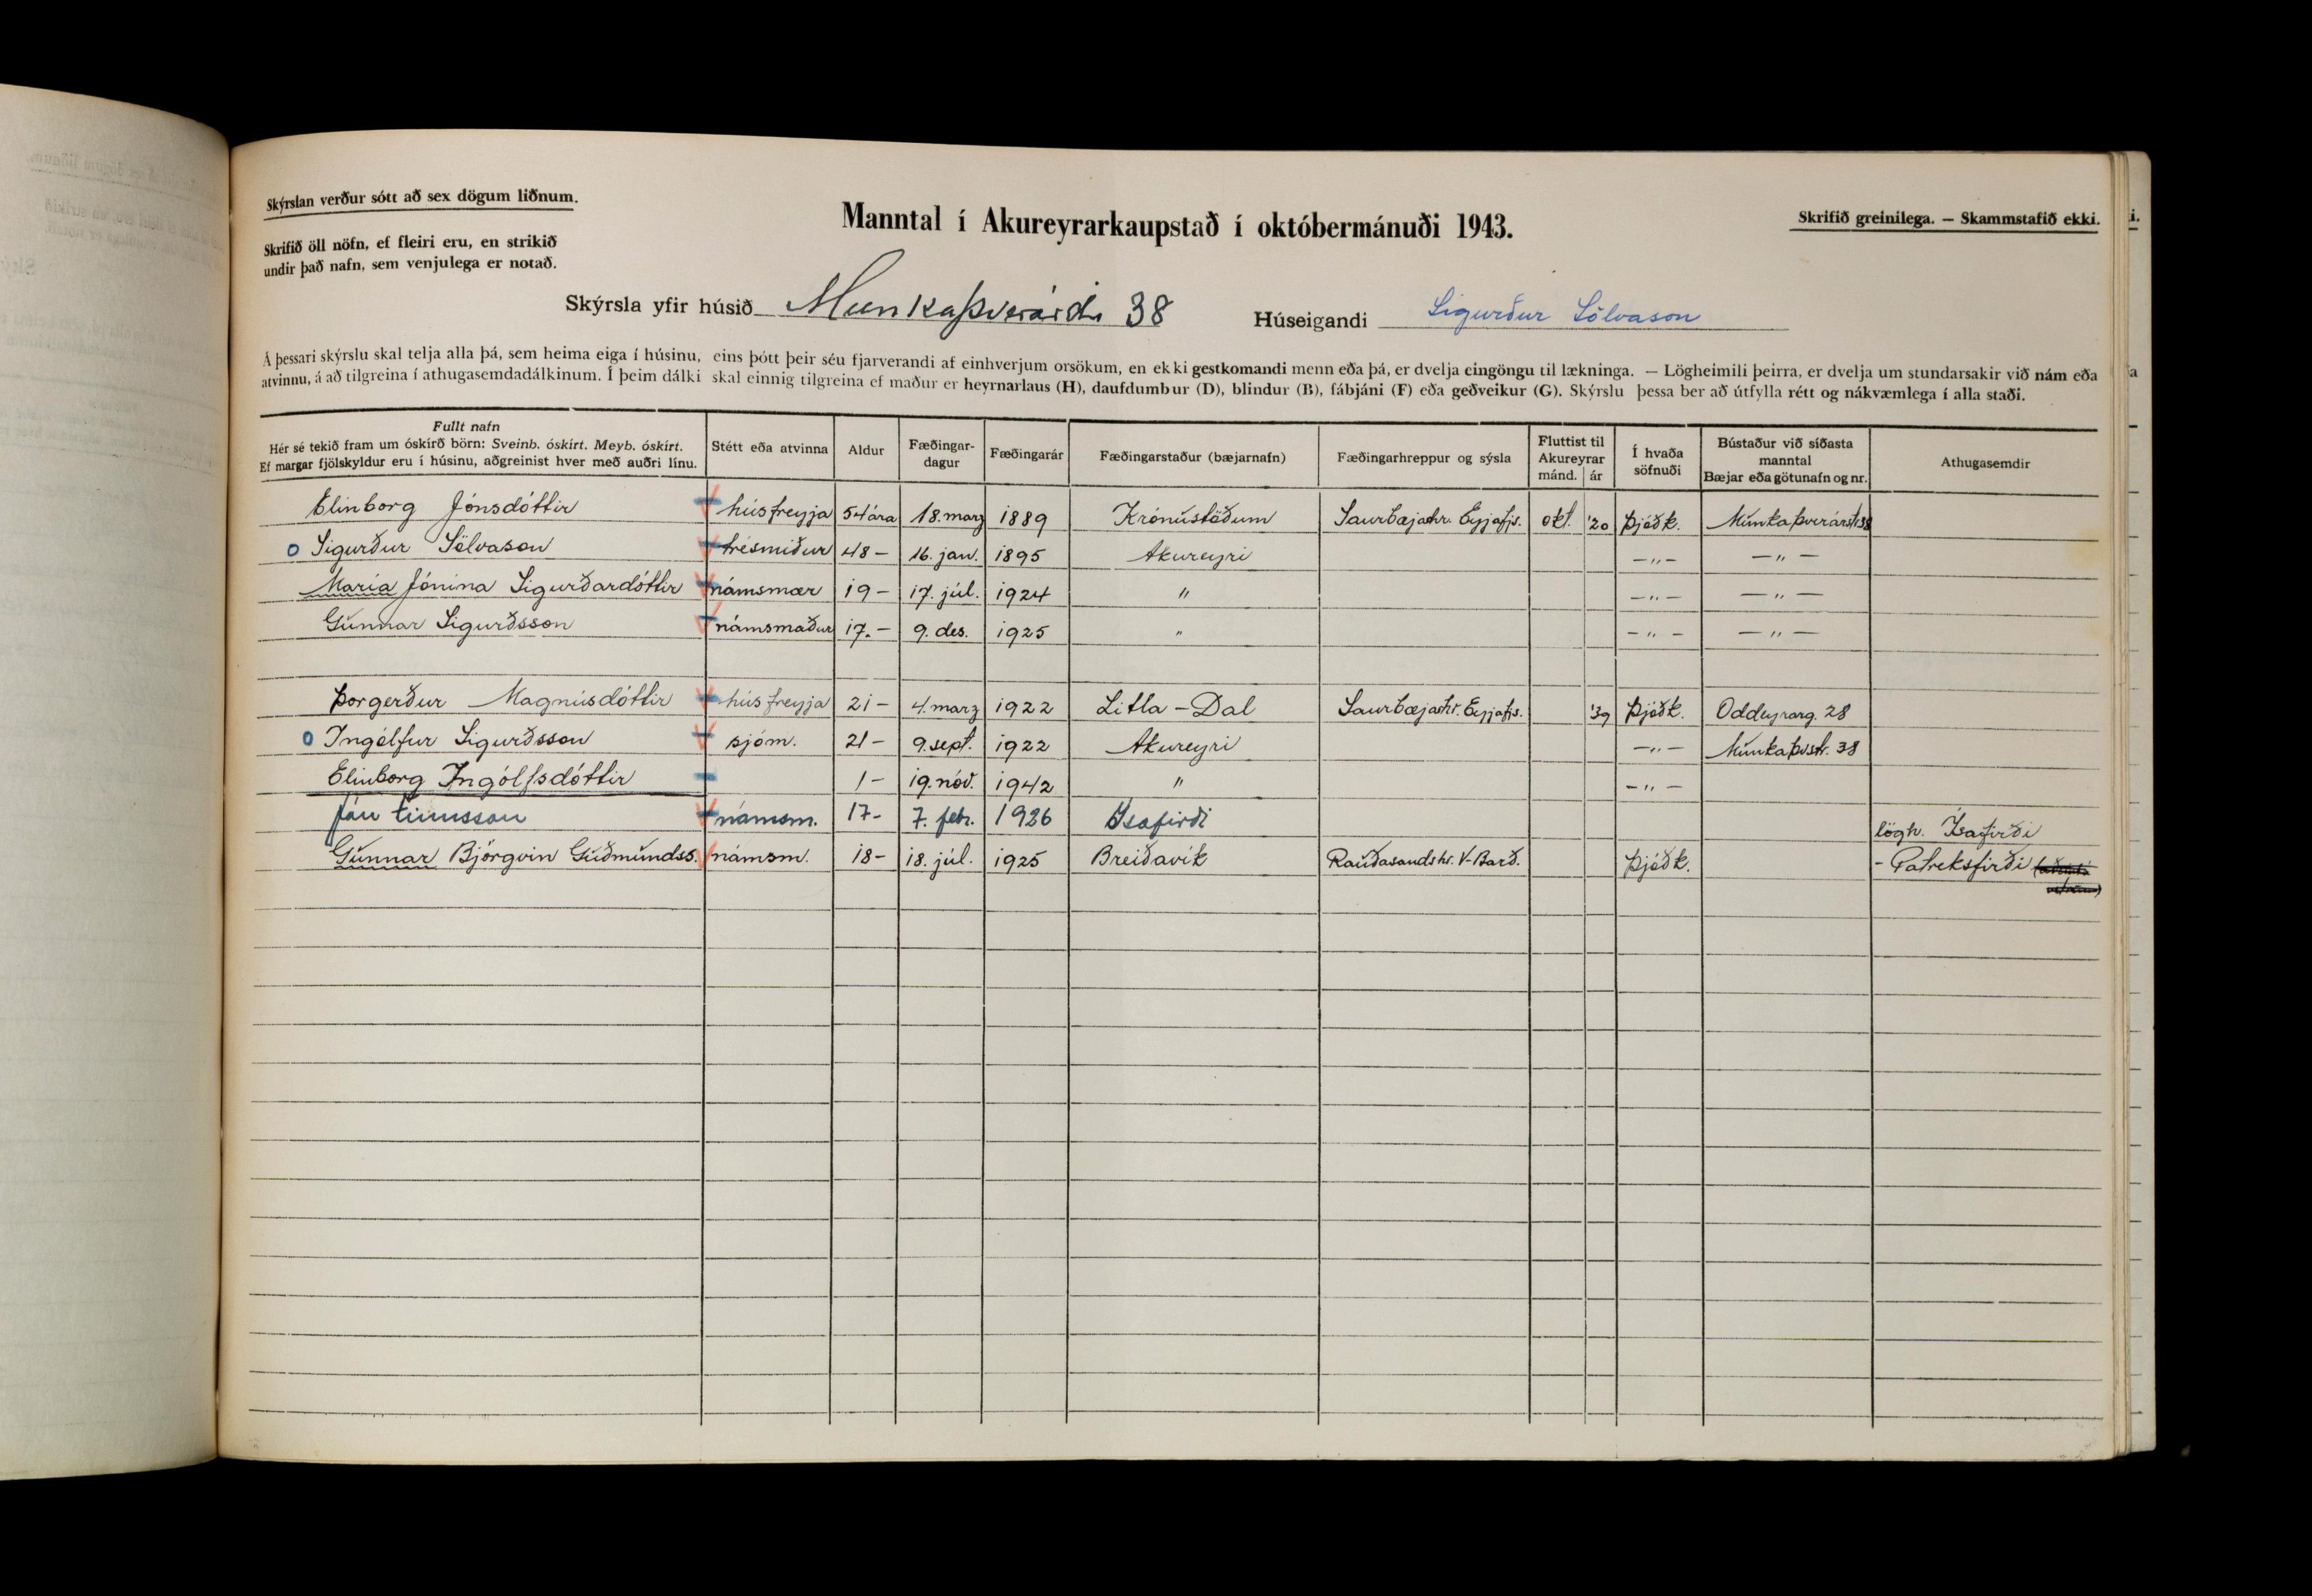 Skýrslan verður sótt að sex dögum liðnum.
Skrifið öll nöfn, ef fleiri eru, en strikið
undir það nafn, sem venjulega er notað.
Manntal í Akureyrarkaupstað í októbermánuði 1943.
Skrifið greinilega. — Skammstafið ekki.
Skýrsla yfir húsið Munkaþverárstr 38 Húseigandi Sigurður Sölvason
Á þessari skýrslu skal telja alla þá, sem heima eiga í húsinu, eins þótt þeir séu fjarverandi af einhverjum orsökum, en ekki gestkomandi menn eða þá, er dvelja eingöngu til lækninga. — Lögheimili þeirra, er dvelja um stundarsakir við nám eða
atvinnu, á að tilgreina í athugasemdadálkinum. Í þeim dálki skal einnig tilgreina ef maður er heyrnarlaus (H), daufdumbur (D), blindur (B), fábjáni (F) eða geðveikur (G). Skýrslu þessa ber að útfylla rétt og nákvæmlega í alla staði.
Fullt nafn
Hér sé tekið fram um óskírð börn: Sveinb. óskírt. Meyb. óskírt.
Ef margar fjölskyldur eru í húsinu, aðgreinist hver með auðri línu.
Stétt eða atvinna
Aldur
Fæðingar-
dagur
Fæðingarár
Fæðingarstaður (bæjarnafn)
Fæðingarhreppur og sýsla
Fluttist til
Akureyrar
mánd. ár
Í hvaða
söfnuði
Bústaður við síðasta
manntal
Bæjar eða götunafn og nr.
Athugasemdir
Elinborg Jónsdóttir húsfreyja 54 ára 18. marz 1889 Krónústöðum Saurbæjarhr. Eyjafjs. okt. '20 Þjóðk. Munkaþverárstr 38
o Sigurður Sölvason trésmiður 48 – 16. jan. 1895 Akureyri –"– –"–
María Jónína Sigurðardóttir námsmær 19 – 17. júl. 1924 " –"– –"–
Gunnar Sigurðsson námsmaður 17. – 9. des. 1925 " –"– –"–
Þorgerður Magnúsdóttir húsfreyja 21 – 4. marz 1922 Litla – Dal Saurbæjarhr. Eyjafjs. '39 Þjóðk. Oddeyrarg. 28
o Ingólfur Sigurðsson sjóm. 21 – 9. sept. 1922 Akureyri –"– Munkaþvstr. 38
Elinborg Ingólfsdóttir 1 – 19. nóv. 1942 " –"–
Jón námsm. 17 – 7. febr. 1926 Ísafirði lögh. Ísafirði
Gunnar Björgvin Guðmundss. námsm. 18 – 18. júl. 1925 Breiðavík Rauðasandshr. V-Barð. Þjóðk. – Patreksfirði